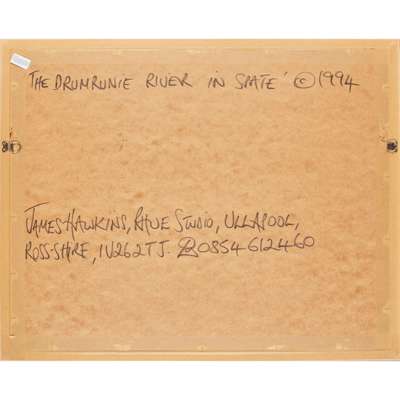 'THE DRUMRUNIE RIVER IN SPATE' ©1994
JAMES HAWKINS, RHUE STUDIO, ULLAPOOL,
ROSS-SHIRE, IV26 2TJ. ☎0854 612460